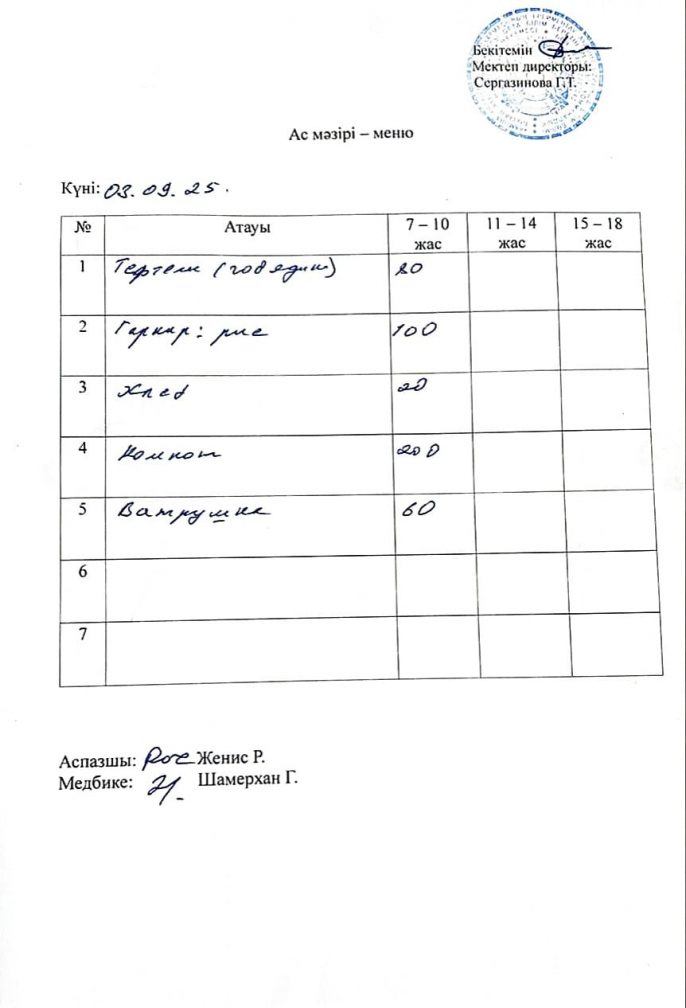 Бекітемін
Мектеп директоры:
Сергазинова Г.Т.
Ас мәзірі – меню
Күні: 03.09.25.
№ Атауы 7 – 10 жас 11 – 14 жас 15 – 18 жас
1 Тефтели 80
2 Гарнир: рис 100
3 Хлеб 20
4 Компот 200
5 Ватрушка 60
6
7
Аспазшы: Женис Р.
Медбике: Шамерхан Г.